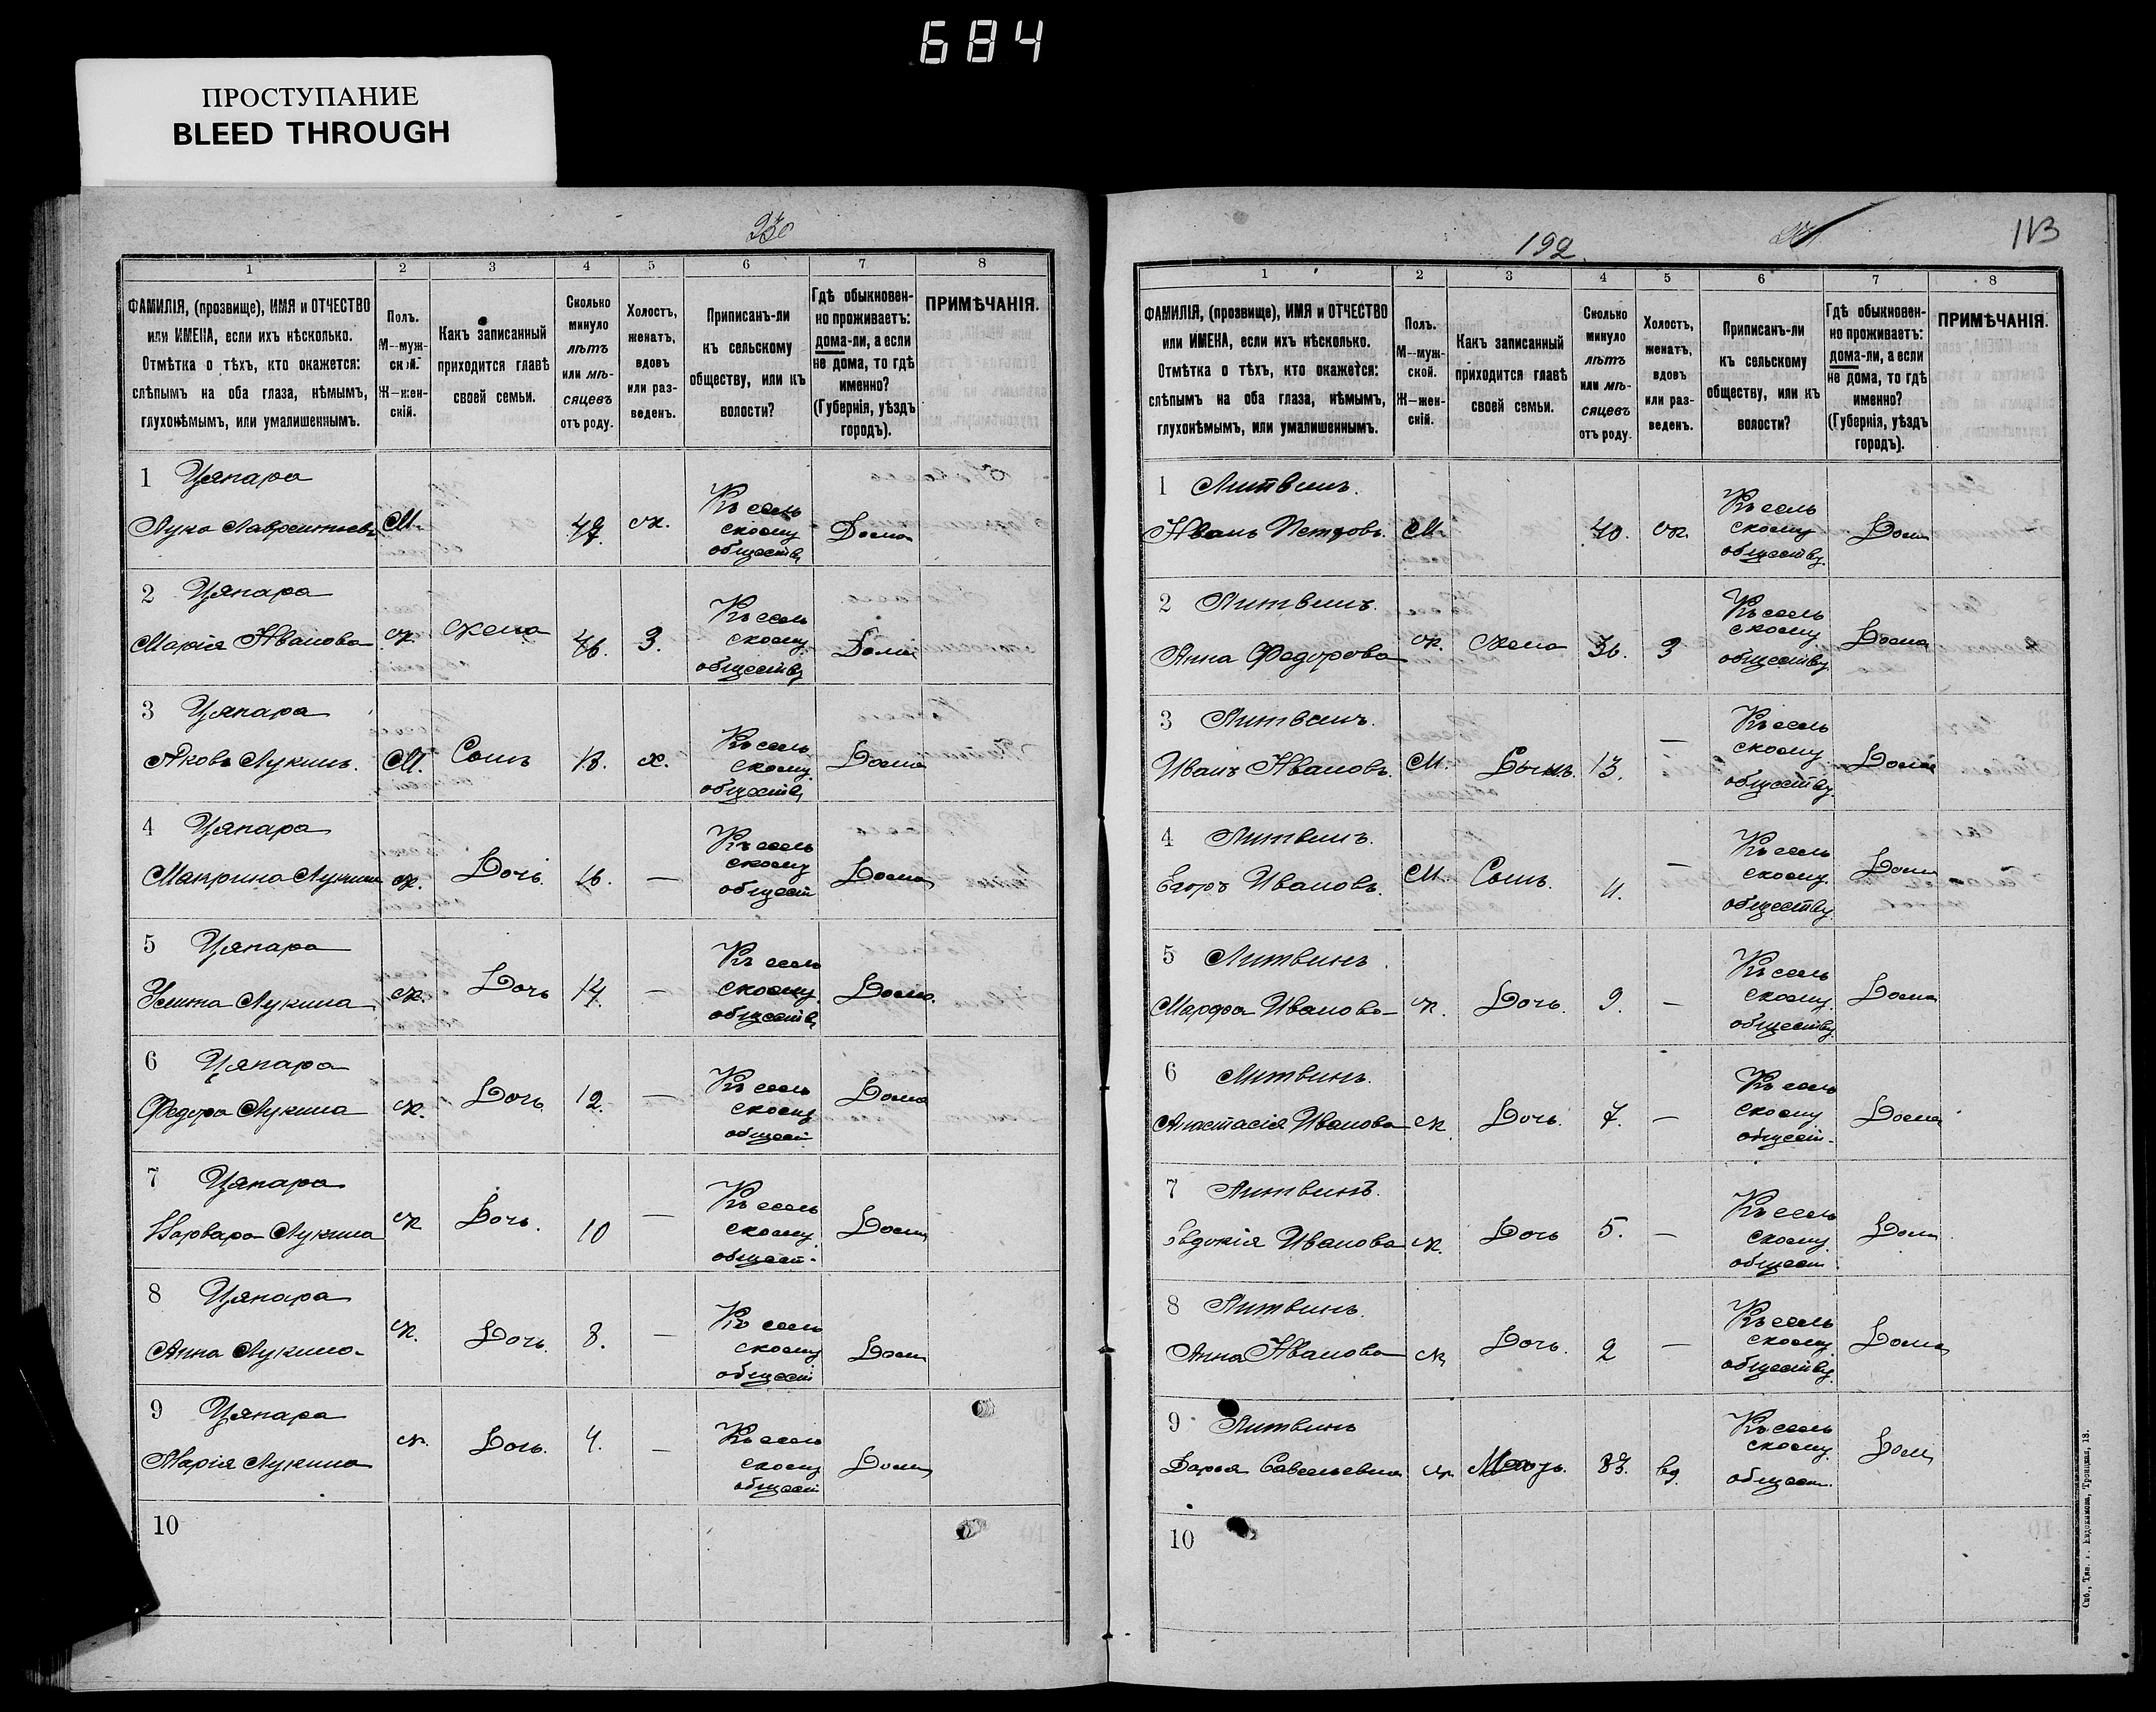 684
ПРОСТУПАНИЕ
BLEED THROUGH
230
1 2 3 4 5 6 7 8
ФАМИЛІЯ, (прозвище), ИМЯ и ОТЧЕСТВО
или ИМЕНА, если ихъ нѣсколько.
Отмѣтка о тѣхъ, кто окажется:
слѣпымъ на оба глаза, нѣмымъ,
глухонѣмымъ, или умалишеннымъ.
Полъ.
М--муж-
ской.
Ж--жен-
скій.
Какъ записанный
приходится главѣ
своей семьи.
Сколько
минуло
лѣтъ
или мѣ-
сяцевъ
отъ роду.
Холостъ,
женатъ,
вдовъ
или раз-
веденъ.
Приписанъ-ли
къ сельскому
обществу, или къ
волости?
Гдѣ обыкновен-
но проживаетъ:
дома-ли, а если
не дома, то гдѣ
именно?
(Губернія, уѣздъ
городъ).
ПРИМѢЧАНІЯ.
1 Цяпара
Лука Лаврентьевъ М. ж. Къ сель
скому
обществ Дома
2 Цяпара
Марія Иванова ж. жена 46. З. Къ сель
скому
обществу Дома
3 Цяпара
Яковъ Лукинъ. М. Сынъ 18. х. Къ сель
скому
обществ Дома
4 Цяпара
Макрина Лукина ж. Дочь. 16. — Къ сель
скому
общест Дома
5 Цяпара
Улита Лукина ж. Дочь 14. — Къ сель
скому
обществ Дома.
6 Цяпара
Федора Лукина ж. Дочь 12. — Къ сель
скому
общест Дома
7 Цяпара
Варвара Лукина ж Дочь. 10 — Къ сель
скому
общест. Дома
8 Цяпара
Анна Лукина ж. Дочь. 8. — Къ сель
скому
общест Дома
9 Цяпара
Марія Лукина ж. Дочь. 4. — Къ сель
скому
общест Дома
10
192.
113
1 2 3 4 5 6 7 8
ФАМИЛІЯ, (прозвище), ИМЯ и ОТЧЕСТВО
или ИМЕНА, если ихъ нѣсколько.
Отмѣтка о тѣхъ, кто окажется:
слѣпымъ на оба глаза, нѣмымъ,
глухонѣмымъ, или умалишеннымъ.
Полъ.
М--муж-
ской.
Ж--жен-
скій.
Какъ записанный
приходится главѣ
своей семьи.
Сколько
минуло
лѣтъ
или мѣ-
сяцевъ
отъ роду.
Холостъ,
женатъ,
вдовъ
или раз-
веденъ.
Приписанъ-ли
къ сельскому
обществу, или къ
волости?
Гдѣ обыкновен-
но проживаетъ:
дома-ли, а если
не дома, то гдѣ
именно?
(Губернія, уѣздъ
городъ).
ПРИМѢЧАНІЯ.
1 Литвинъ.
Иванъ Петровъ. М. 40. ж. Къ сель
скому
обществу. Дома
2 Литвинъ.
Анна Федорова ж. жена 36. З Къ сель
скому
обществу Дома
3 Литвинъ.
Иванъ Ивановъ. М. Сынъ. 13. — Къ сель
скому
обществу. Дома
4 Литвинъ.
Егоръ Ивановъ. М. Сынъ. 11. — Къ сель
скому
обществу. Дома
5 Литвинъ.
Марфа Иванова ж. Дочь. 9. — Къ сель
скому.
обществу. Дома
6 Литвинъ.
Анастасія Иванова ж. Дочь. 7. — Къ сель
скому
общест. Дома
7 Литвинъ.
Евдокія Иванова ж. Дочь 5. — Къ сель
скому.
общест. Дома
8 Литвинъ.
Анна Иванова ж Дочь. 2 — Къ сель
скому.
обществу. Дома
9 Литвинъ
Дарья Савельевна ж. Мать. 83. вд. Къ сель
скому.
общест. Дома
10
Спб., Тип. Евдокимова, Троицкая, 18.